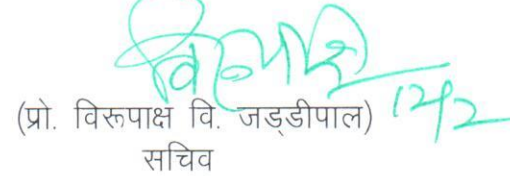 12/2
(प्रो. विरूपाक्ष वि. जड्डीपाल)
सचिव